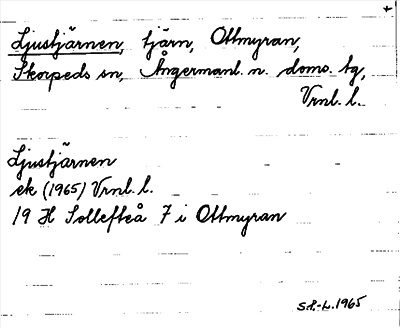 Ljustjärnen, tjärn, Ottmyran,
Skorpeds sn, Ångermanl. n. doms. tg,
Vrnl. l.
Ljustjärnen
ek (1965) Vrnl. l.
19 H Sollefteå 7 i Ottmyran
S.P.-L. 1965